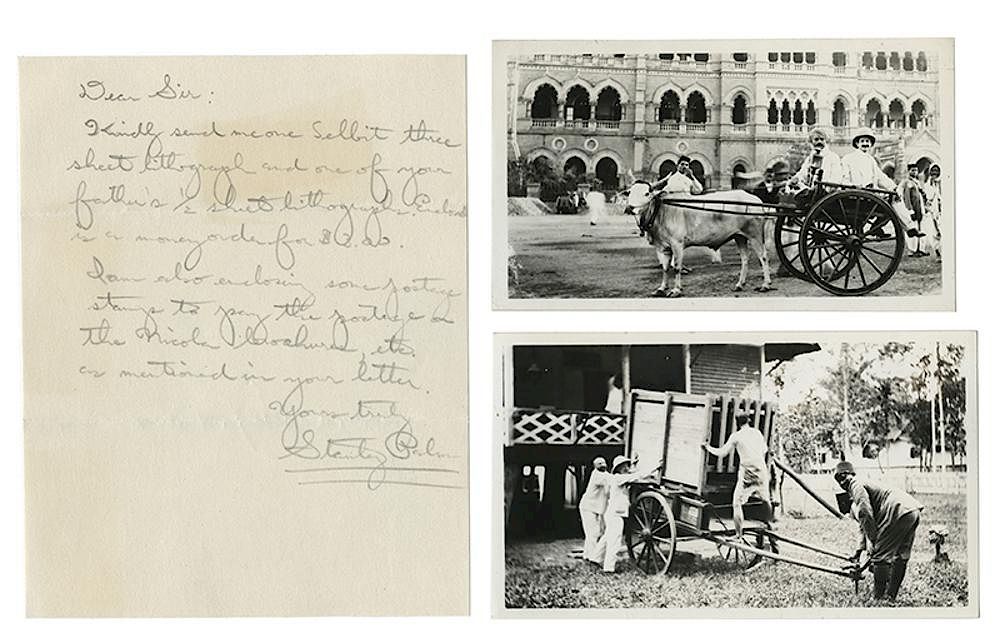 Dear Sir:
Kindly send me one Selbit three
sheet lithograph and one of your
father's ½ sheet lithographs. Enclosed
is a money order for $
I am also enclosing some postage
stamps to pay the postage on
the Nicola brochures, etc.
as mentioned in your letter.
Yours truly
Stanley Palm